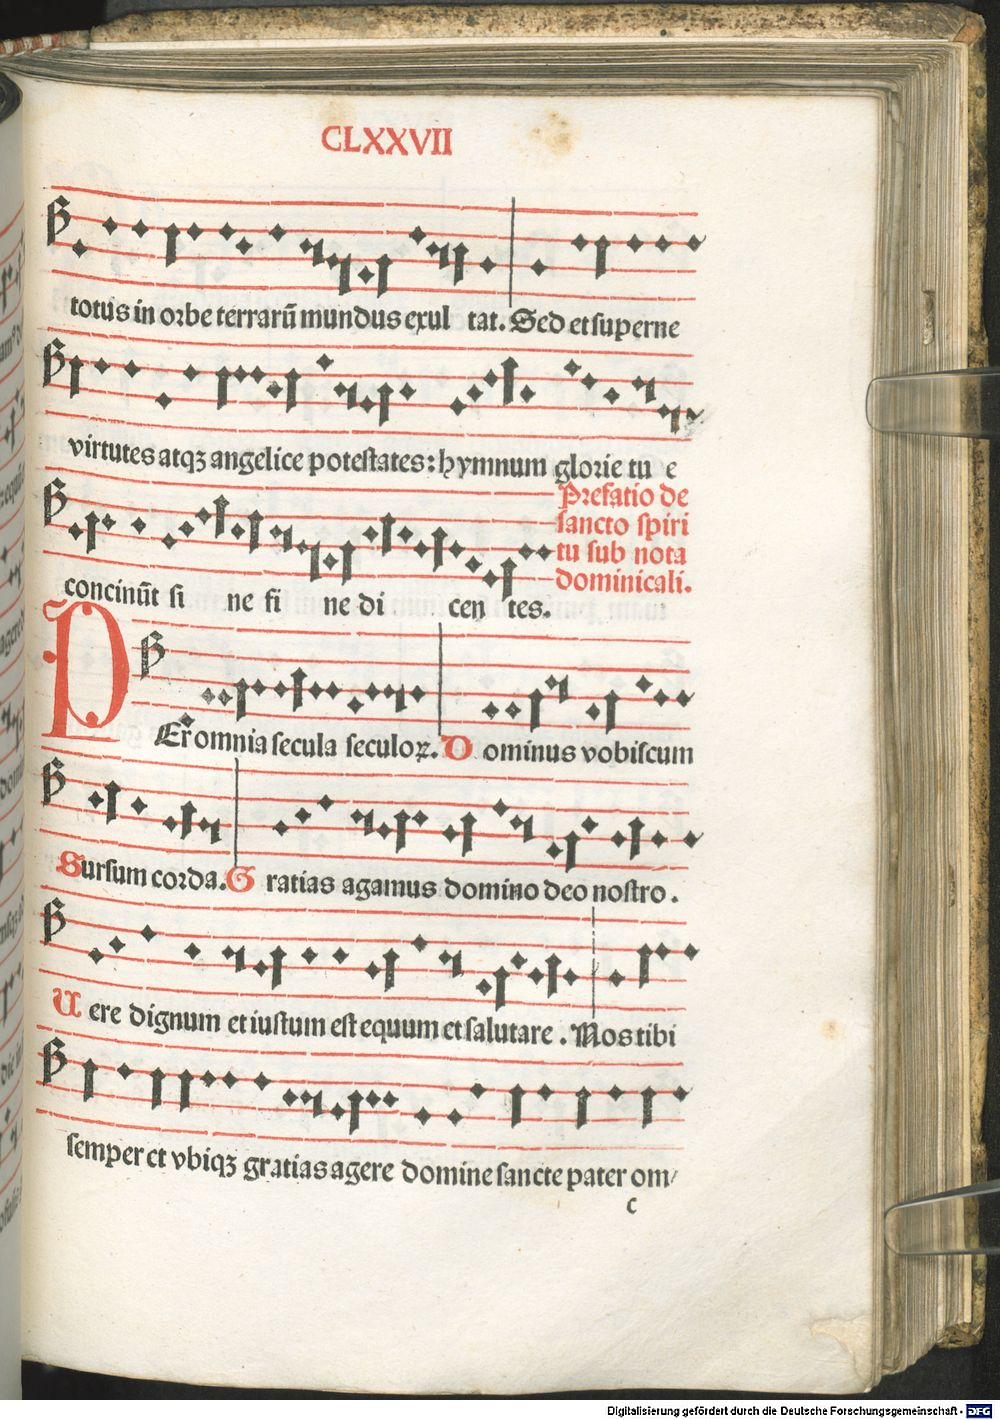 CLXXVII
totus in orbe terrarū mundus exul tat. Sed et superne
virtutes atqꝫ angelice potestates: hymnum glorie tu e
Prefatio de
sancto spiri
tu sub nota
dominicali.
concinūt si ne fi ne di cen tes.
PEr omnia secula seculoꝝ. Dominus vobiscum
Sursum corda. Gratias agamus domino deo nostro.
Uere dignum et iustum est equum et salutare. Nos tibi
semper et vbiqꝫ gratias agere domine sancte pater om/
c
Digitalisierung gefördert durch die Deutsche Forschungsgemeinschaft - DFG